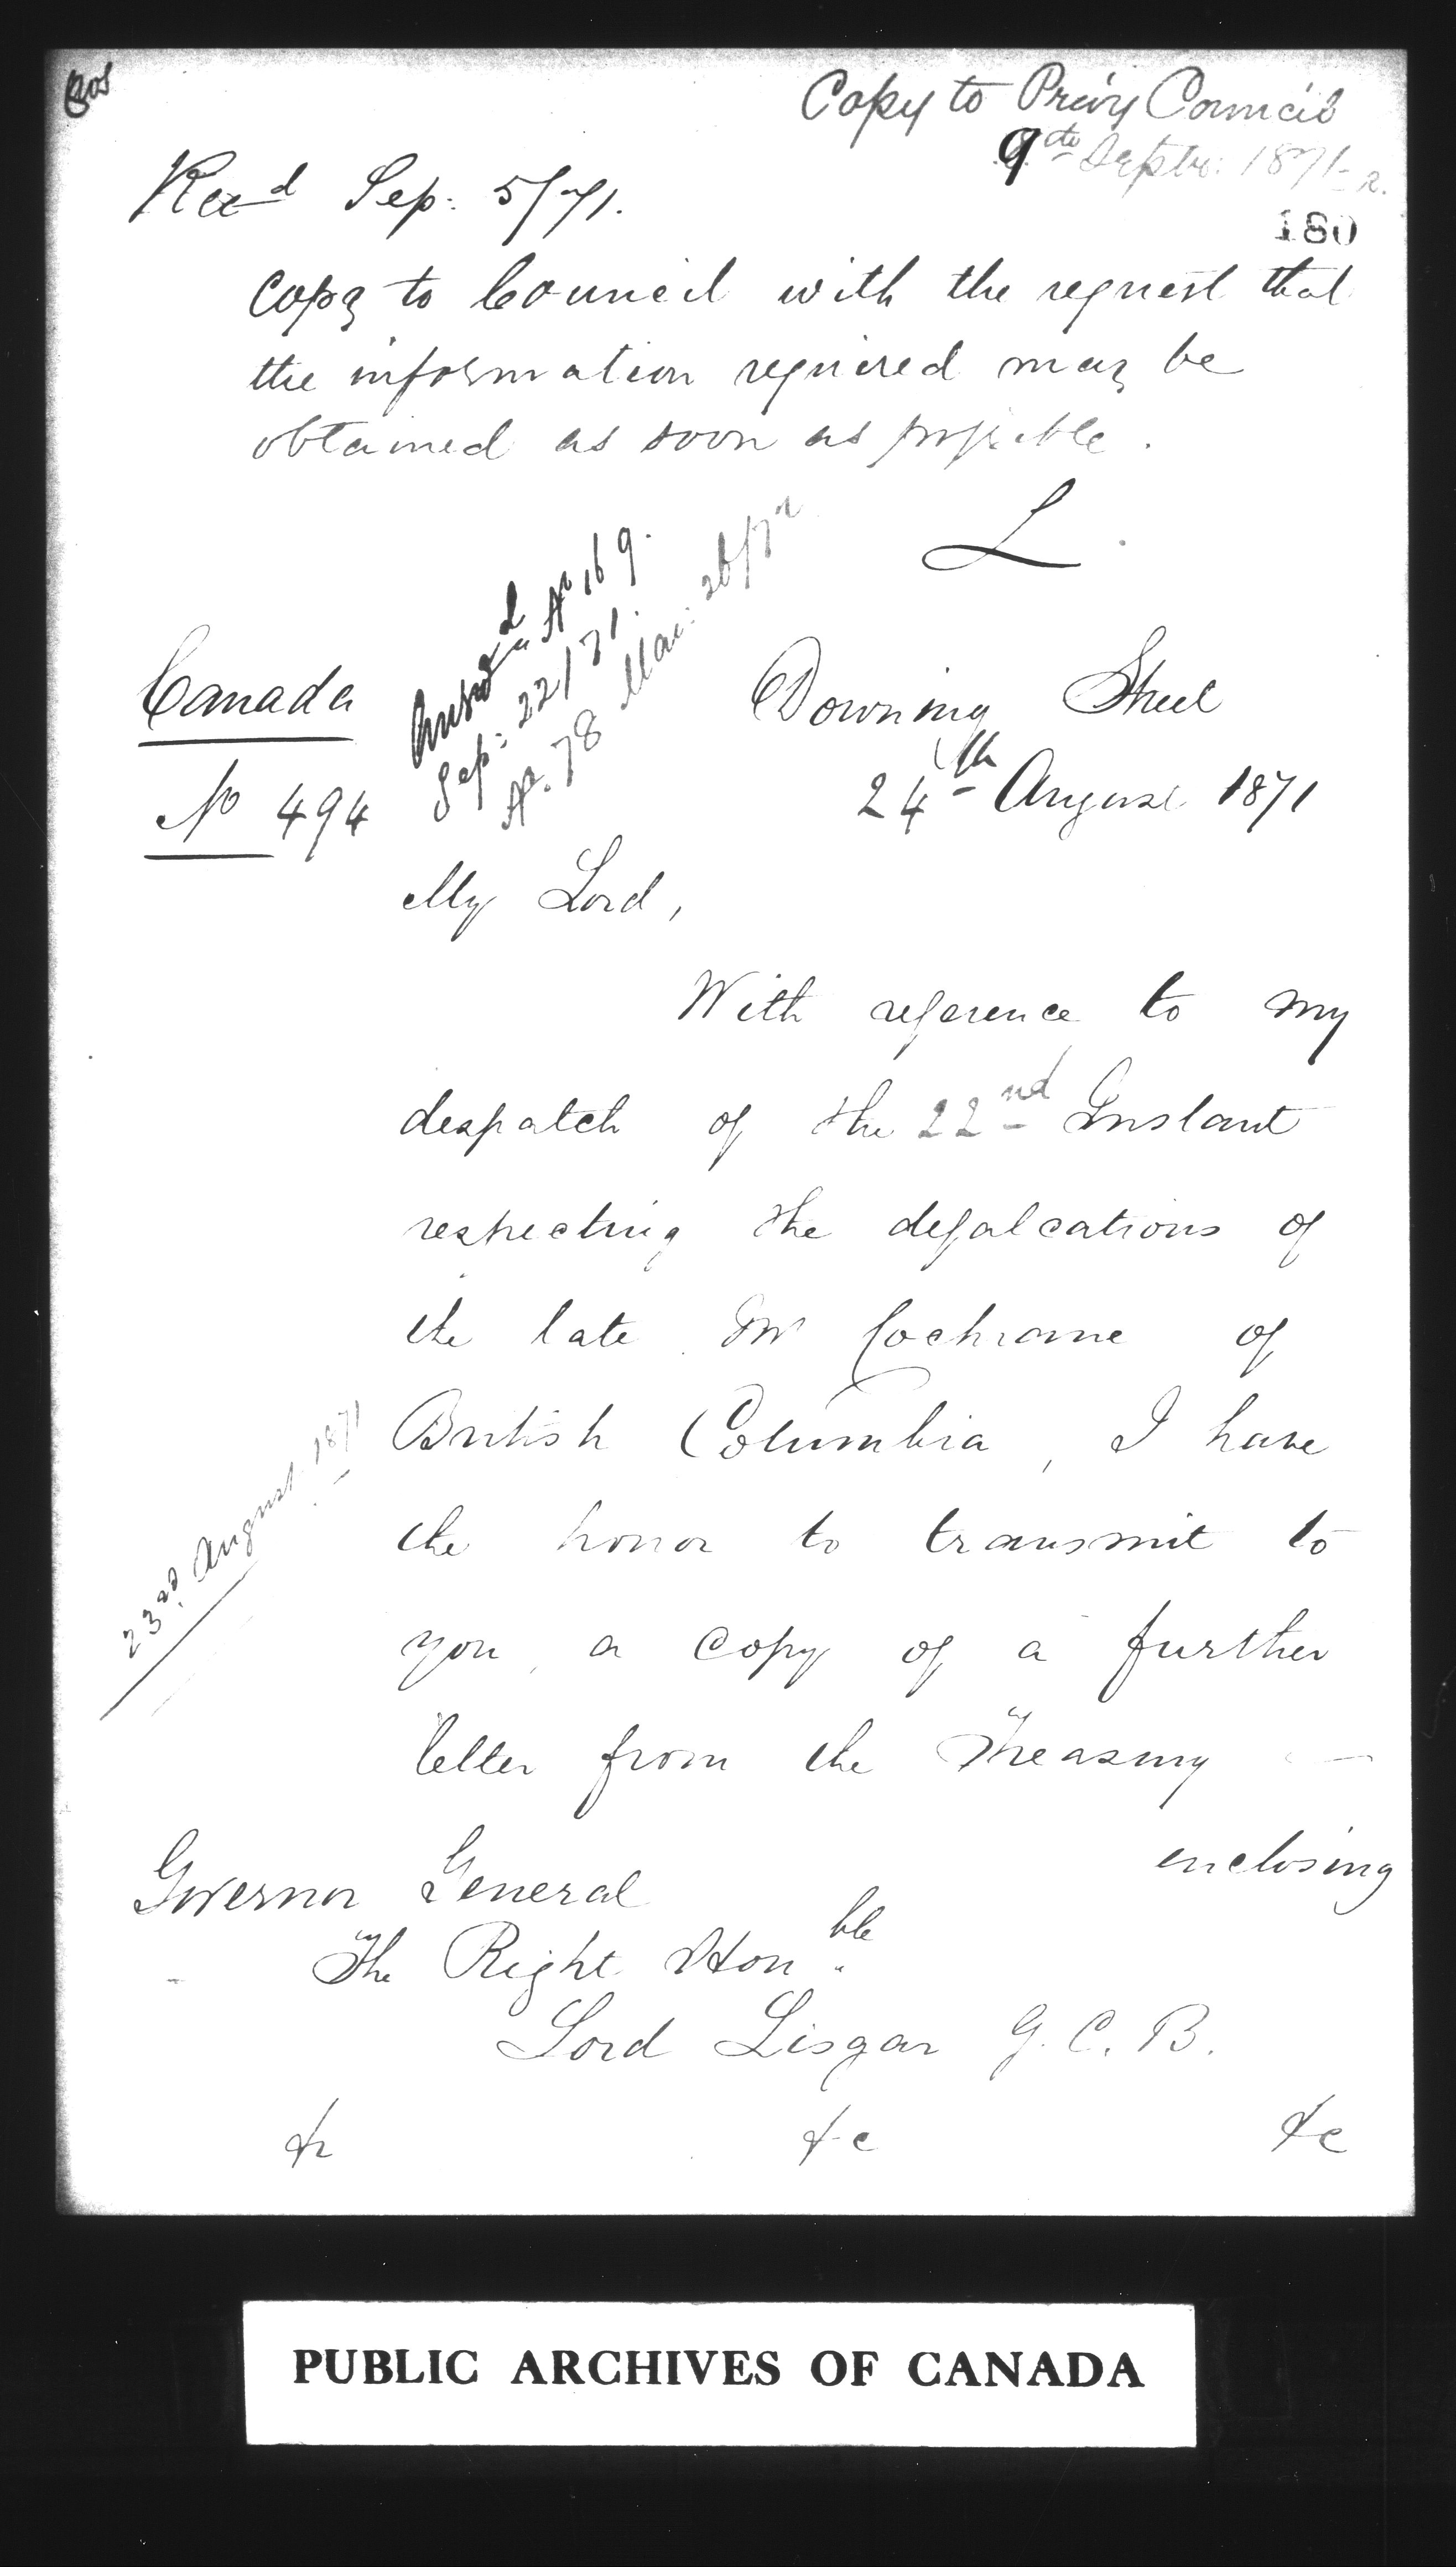 Copy to Privy Council
9th Septbr: 1871
Recd Sep: 5/71.
180
Copy to Council with the request that
the information required may be
obtained as soon as possible.
L.
Answd No 169.
Sep: 22/71.
No. 78 Mar: 26/72
Canada
No 494
Downing Street
24th August 1871
My Lord,
With reference to my
despatch of the 22nd Instant
respecting the defalcations of
the late Mr Cochrane of
British Columbia, I have
the honor to transmit to
23rd August 1871
you, a copy of a further
letter from the Treasury
enclosing
Governor General
The Right Honble
Lord Lisgar G.C.B.
&c &c &c
PUBLIC ARCHIVES OF CANADA